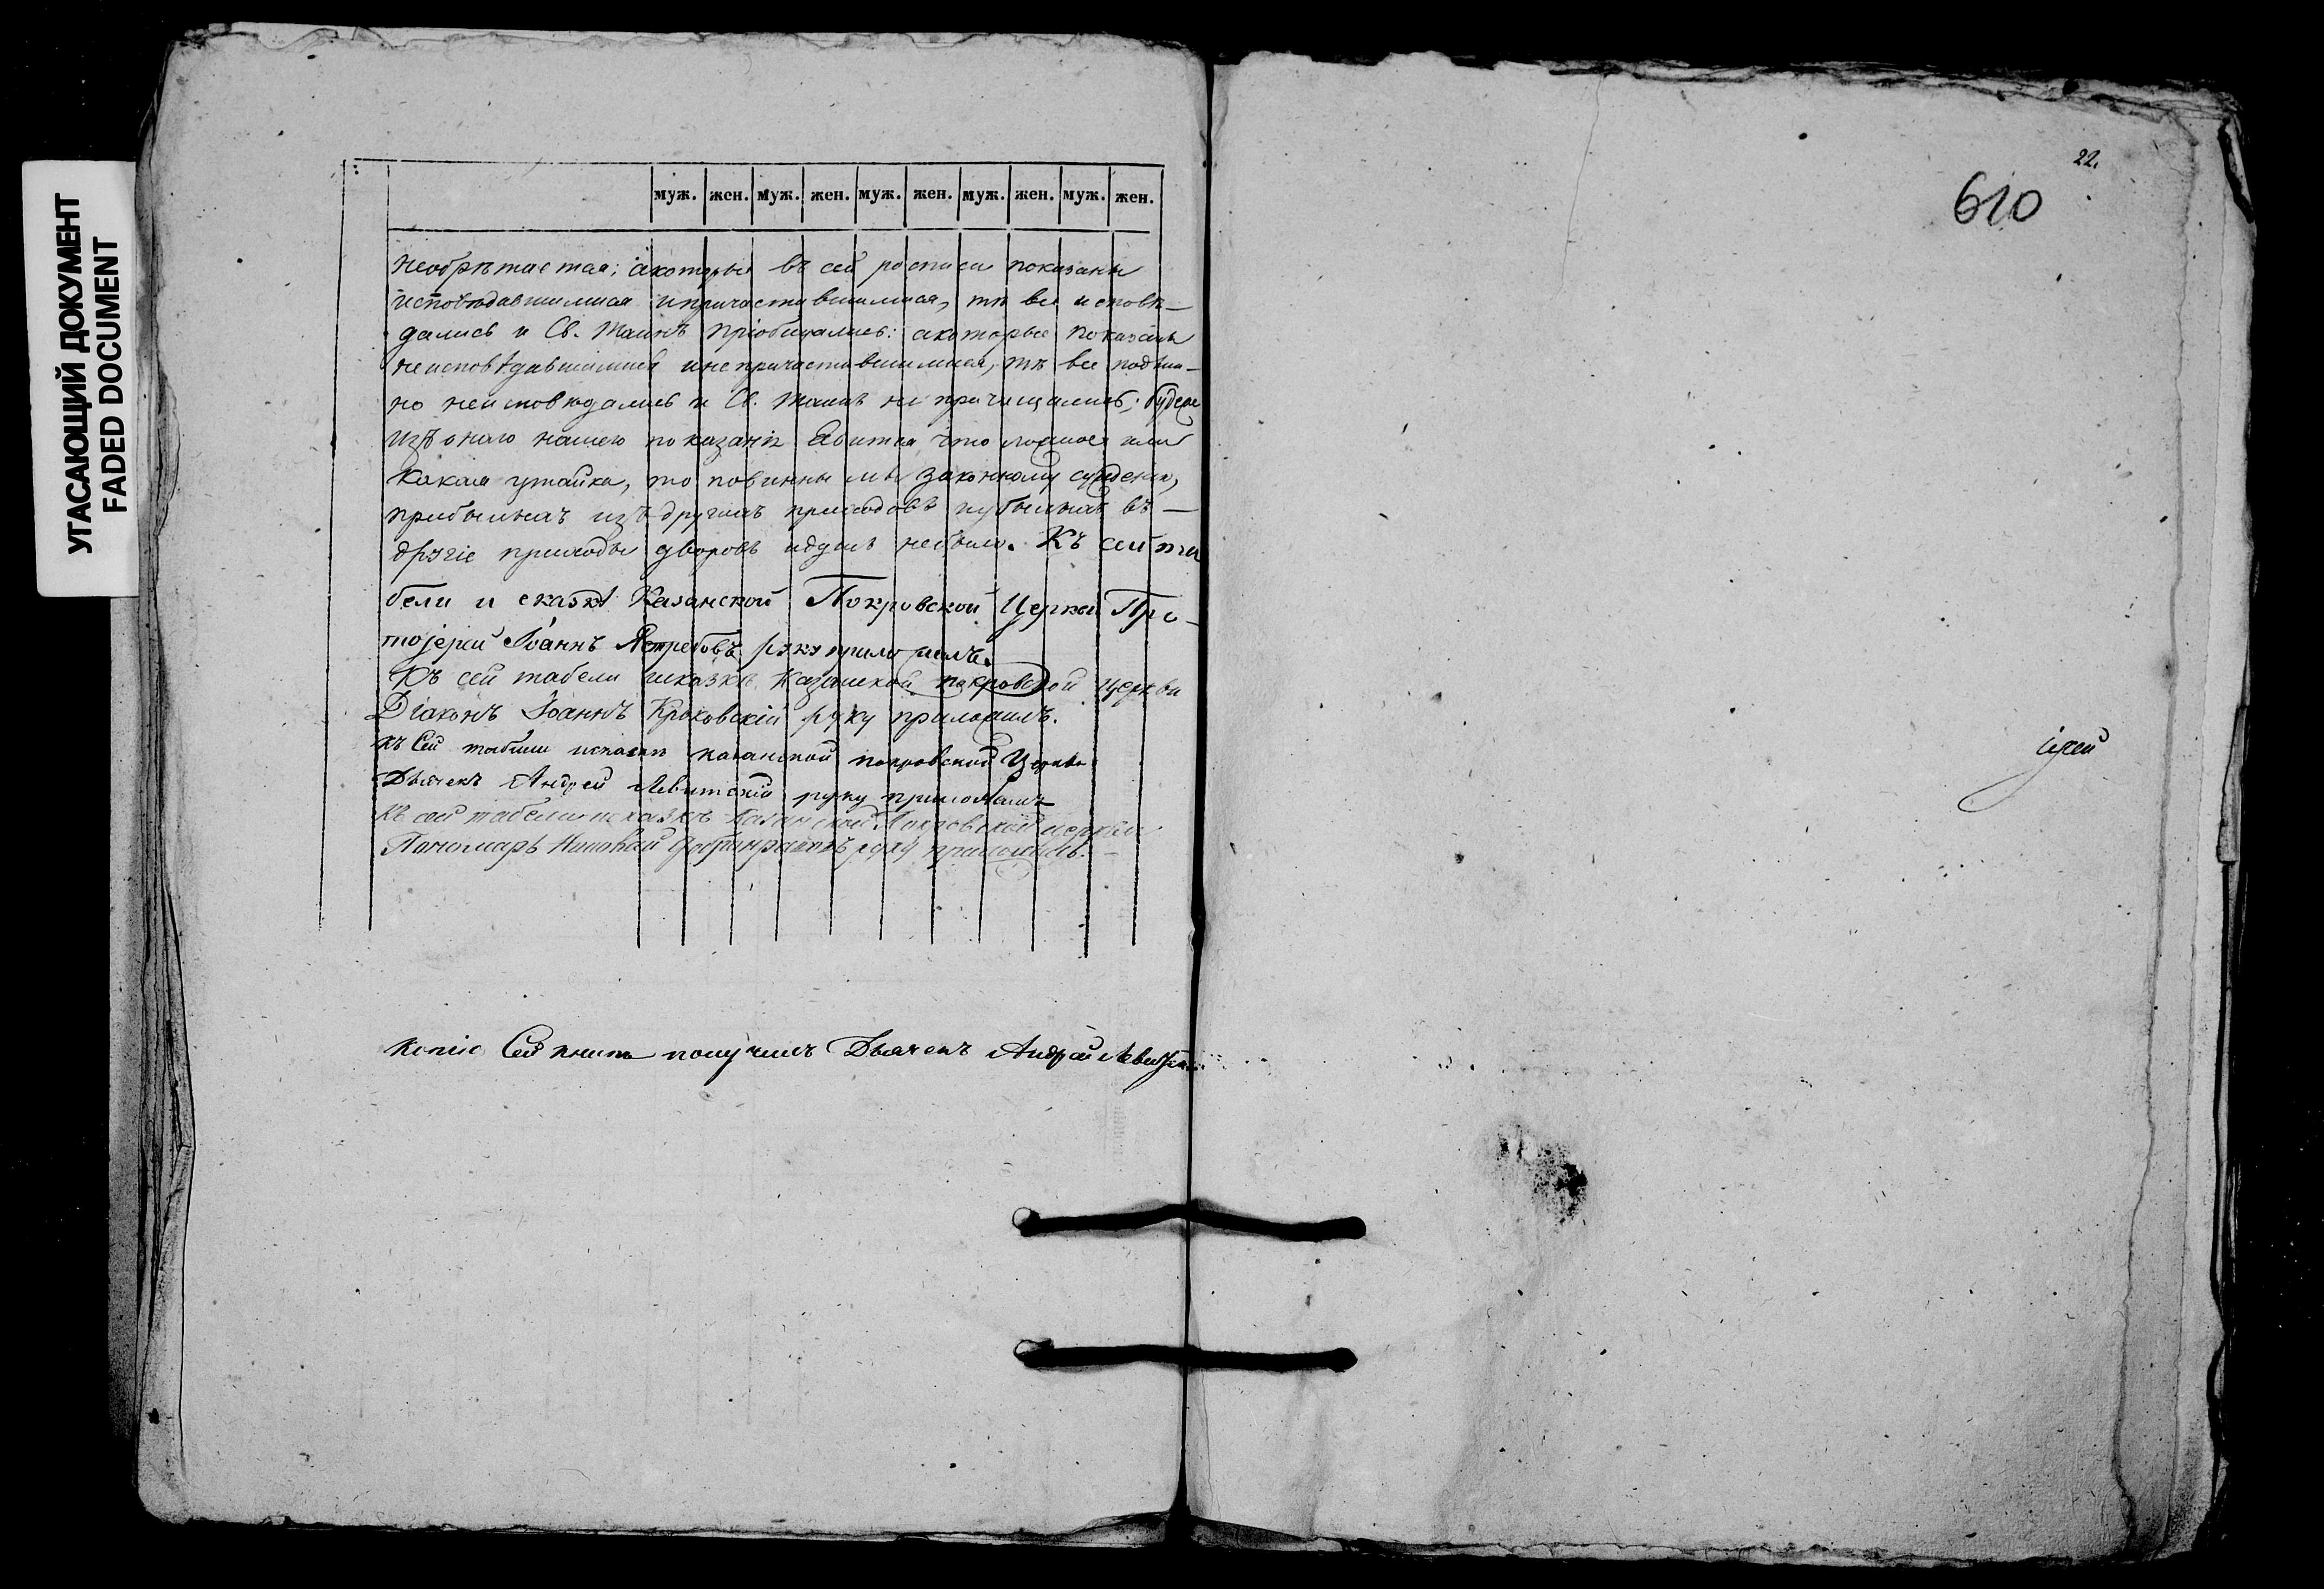 УГАСАЮЩИЙ ДОКУМЕНТ
FADED DOCUMENT
муж. жен. муж. жен. муж. жен. муж. жен. муж. жен.
необрѣтается; акоторые въ сей росписи показаны
исповѣдавшимися ипричастившимися, тѣ все исповѣ-
дались и Св. Таинъ пріобщались: акоторые показаны
неисповѣдавшимися инепричастившимися, тѣ все подлин-
но неисповѣдались и Св. Таинъ не причащались; будеже
изъ онаго нашего показанія явится что ложное или
какая утайка, то повинны мы законному сужденію,
прибылыхъ изъ другихъ приходовъ иубылыхъ въ
другіе приходы дворовъ идушъ небыло. Къ сей та
бели и сказкѣ Казанской Покровской Церкви Про-
тоіерей Іоаннъ Ястребовъ руку приложилъ.
Къ сей табели искаскѣ Казанской покровской церкви
Діаконъ Іоаннъ Кроковскій руку приложилъ.
къ Сей табели искаскѣ казанской покровской Церкви
Дьячекъ Андрей Левитскій руку приложилъ
Къ сей табели исказкѣ Казанской Покровской церкви
Пономарь руку приложилъ.
копію Сей книги получилъ Дьячекъ Андрей Левитскій
22.
610
іерей